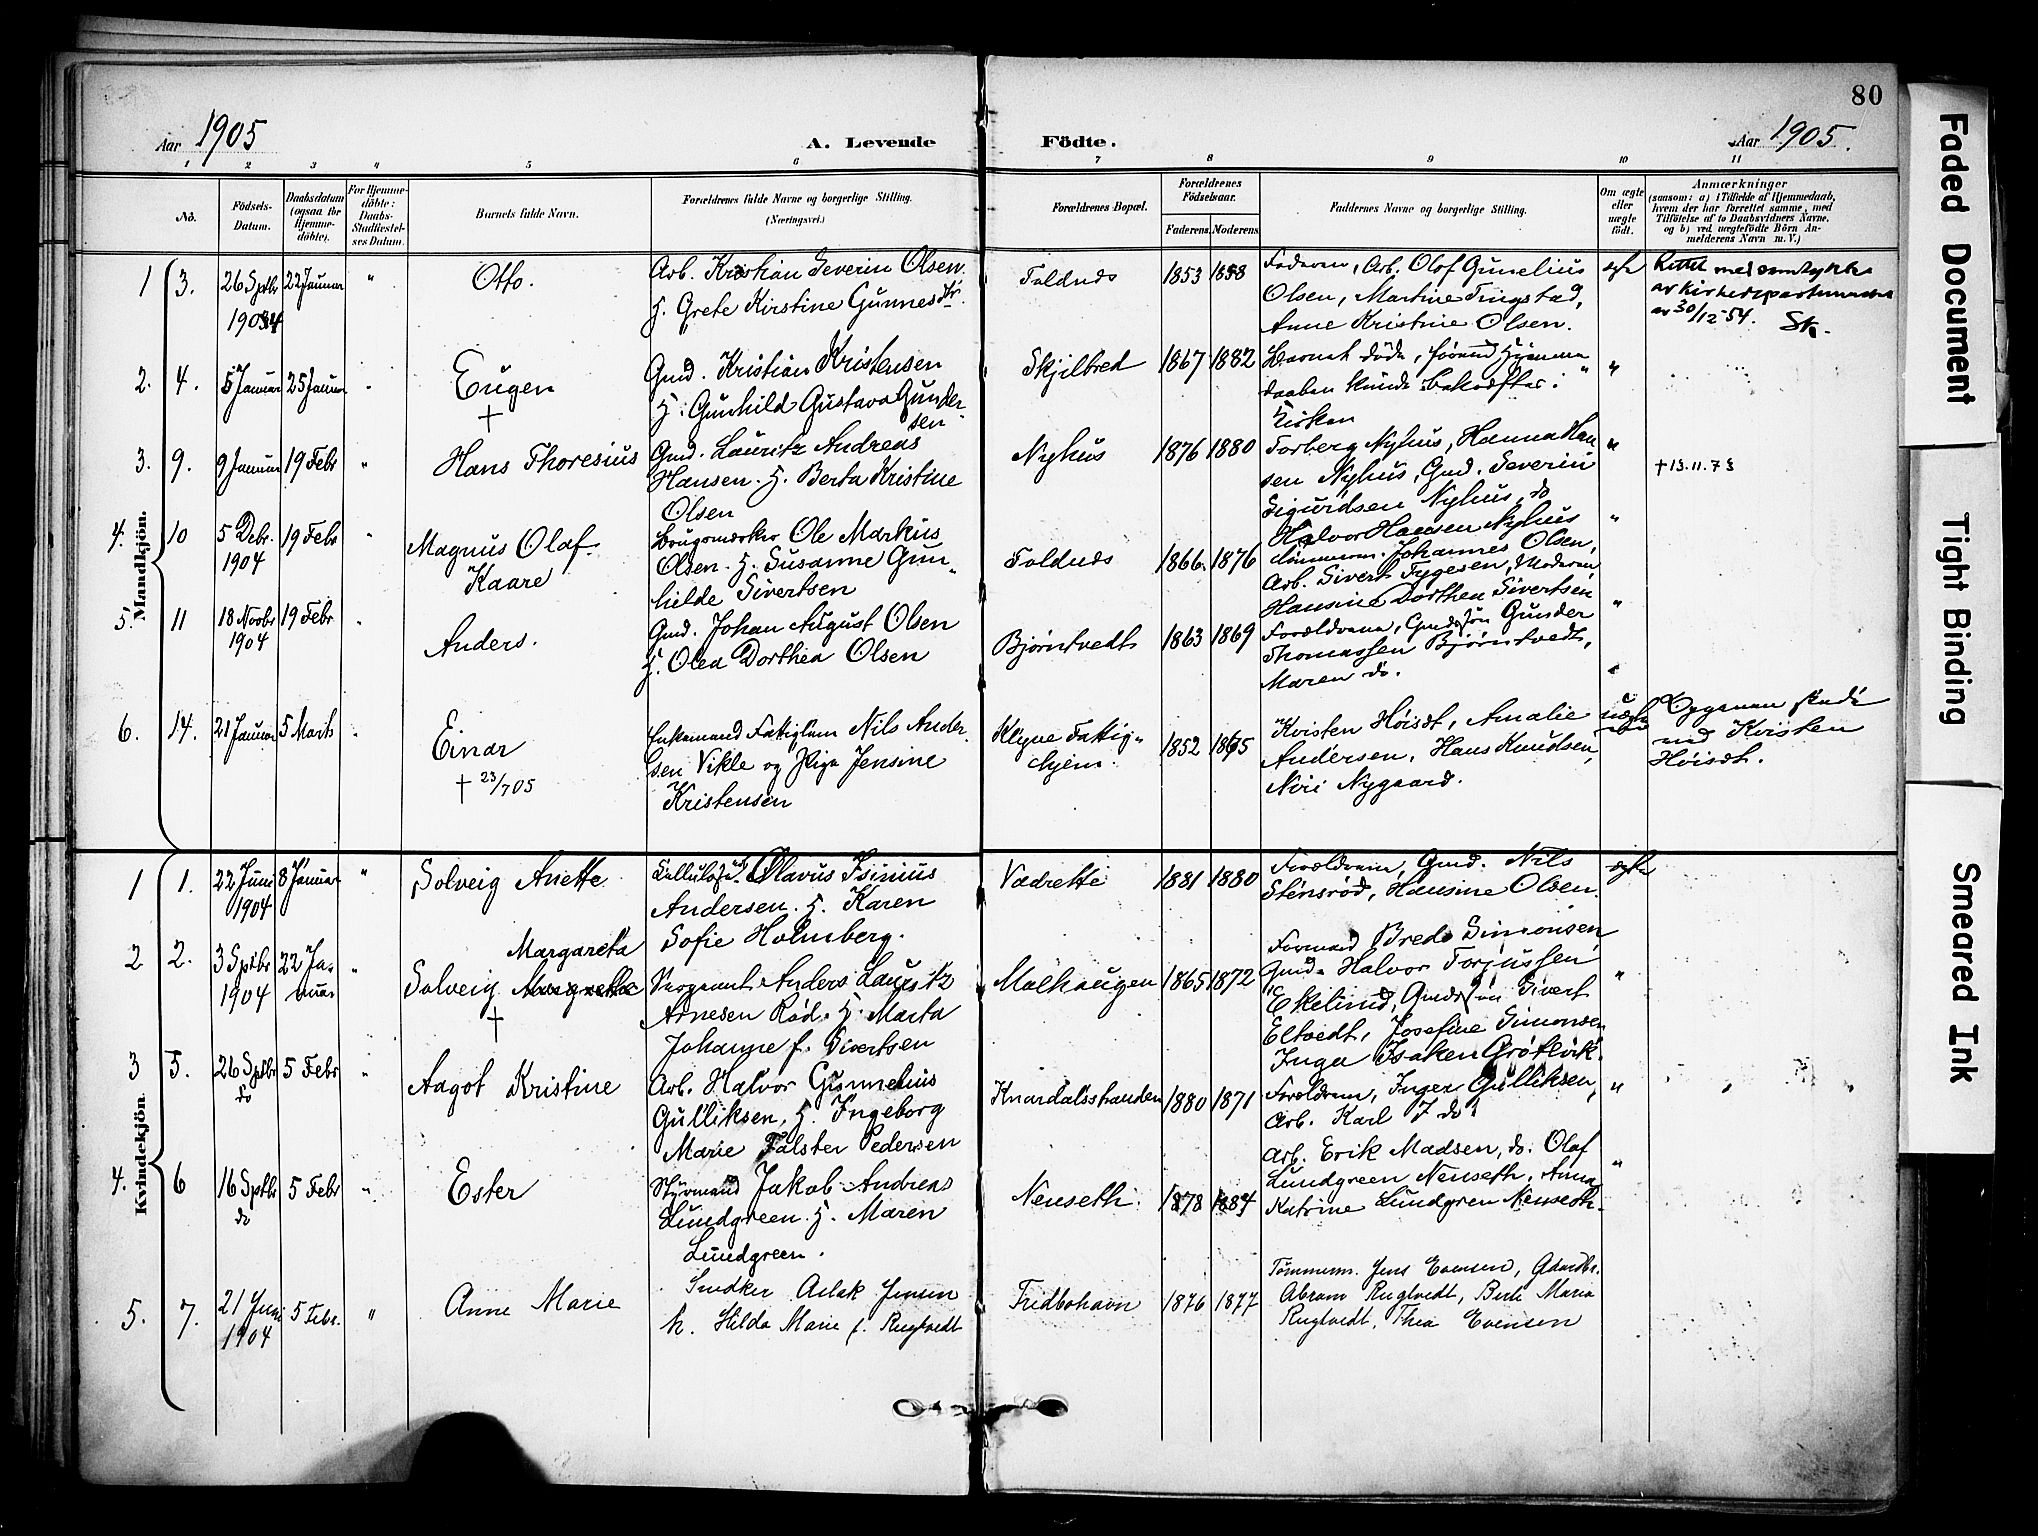 80
Aar 1905
A. Levende Födte.
Aar 1905.
1 2 3 4 5 6 7 8 9 10 11
No.
Födsels-Datum.
Daabsdatum (ogsaa for Hjemme-döbte).
For Hjemme-döbte: Daabs-Stadfæstel-ses Datum.
Barnets fulde Navn.
Forældrenes fulde Navne og borgerlige Stilling.
(Næringsvei.)
Forældrenes Bopæl.
Forældrenes Födselsaar.
Faderens. Moderens.
Faddernes Navne og borgerlige Stilling.
Om ægte eller uægte födt.
Anmærkninger
(saasom: a) i Tilfælde af Hjemmedaab,
hvem der har forrettet samme, med
Tilföielse af to Daabsvidners Navne,
og b) ved uægtefödte Börn An-
melderens Navn m. V.)
Mandkjön.
1 3. 26 Sptbr 1904 22 Januar " Otto.
Arb. Kristian Severin Olsen
H. Grete Kirstine Gunnesdtr.
Foldnes 1853 1858
Faderen, Arb. Olof Gunelius
Olsen, Martine Tingstad,
Anne Kristine Olsen.
ægte
Rettet med samtykke
av Kirkedepartementet
av 30/12-54. Sk.
2. 4. 5 Januar 25 Januar " Eugen
+
Gmd. Kristian Kristensen
H. Gunhild Gustava Gunder-
sen
Skjilbred 1867 1882
Barnet døde, førend Hjemme
daaben kunde bekræftes i
Kirken
"
3. 9. 9 Januar 19 Febr " Hans Thoresius
Gmd. Lauritz Andreas
Hansen. H. Berta Kristine
Olsen
Nyhus 1876 1880
Torberg Nyhus, Hanna Han
sen Nyhus, Gmd. Severin
Sigurdsen Nyhus, do
Halvor Hansen Nyhus
"
+ 13.11.73
4. 10 5 Debr. 1904 19 Febr " Magnus Olaf
Kaare
Brugsarb. Ole Markus
Olsen. H. Susanne Gun-
hilde Sivertsen
Foldnes 1866 1876
Tömmerm. Johannes Olsen,
Arb. Sivert Tygesen, Moderen
Hansine Dorthea Sivertsen
"
5. 11 18 Novbr 1904 19 Febr " Anders.
Gmd. Johan August Olsen
H. Olea Dorthea Olsen
Bjørntvedt 1863 1869
Forældrene, Gmdssøn Gunder
Thomassen Bjørntvedt,
Maren do.
"
6. 14. 21 Januar 5 Marts " Einar
+ 23/7 05
Enkemand Fattiglem Nils Ander-
sen Vikle og Pige Jensine
Kristensen
Klyve Fattig-
hjem. 1852 1865
Kristen Høisæt, Amalie
Andersen, Hans Knudsen,
Niri Nygaard.
uægte
Opgaven skede
ved Kristen
Høisæt.
Kvindekjön.
1 1. 22 Juni 1904 8 Januar " Solveig Anette
Cellulosearb. Olavus Isinius
Andersen. H. Karen
Sofie Holmberg.
Vadrette 1881 1880
Forældrene, Gmd. Nils
Stensrød, Hansine Olsen.
ægte
2 2. 3 Sptbr 1904 22 Ja-
nuar " Solveig Margareta
+
Sergeant Anders Lauritz
Arnesen Rød. H. Marta
Johanne f. Sivertsen
Molhaugen 1865 1872
Formand Brede Simonsen
Gmd. Halvor Torjussen
Ekelund, Gmdssøn Sivert
Eltvedt, Josefine Simonsen
Inga Isaksen Grøtvik.
"
3 5. 26 Sptbr do 5 Febr " Aagot Kristine
Arb. Halvor Gunnelius
Gulliksen, H. Ingeborg
Marie Falster Pedersen
Knardalsstranden 1880 1871
Forældrene, Inger Gulliksen,
Arb. Karl J do
"
4. 6 16 Sptbr do 5 Febr " Ester
Styrmand Jakob Andreas
Lundgreen. H. Maren
Lundgreen.
Nenseth. 1878 1884
Arb. Erik Madsen, do. Olaf
Lundgreen Nenseth, Anna
Katrine Lundgren Nenseth.
"
5. 7. 21 Juni 1904 5 Febr. " Anne Marie
Snedker Aslak Jensen
h. Hilda Marie f. Rugtvedt
Fredbohavn 1876 1877
Tömmerm. Jens Evensen, Gaardbr.
Abram Rugtvedt, Berte Maria
Rugtvedt, Thea Evensen
Faded Document
Tight Binding
Smeared Ink